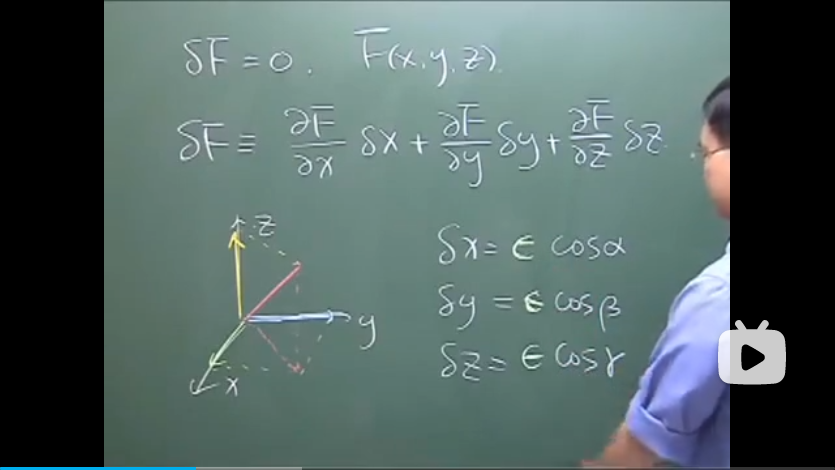 δF = 0. F(x, y, z).
δF ≡ ∂F/∂x δx + ∂F/∂y δy + ∂F/∂z δz
z
y
x
δx = ϵ cosα
δy = ϵ cosβ
δz = ϵ cosγ